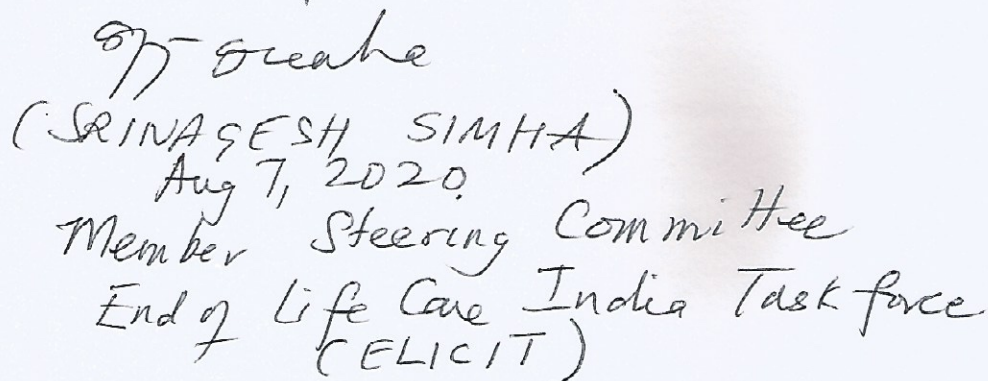 (SRINAGESH SIMHA)
Aug 7, 2020.
Member Steering Committee
End of Life Care India Task force
(ELICIT)